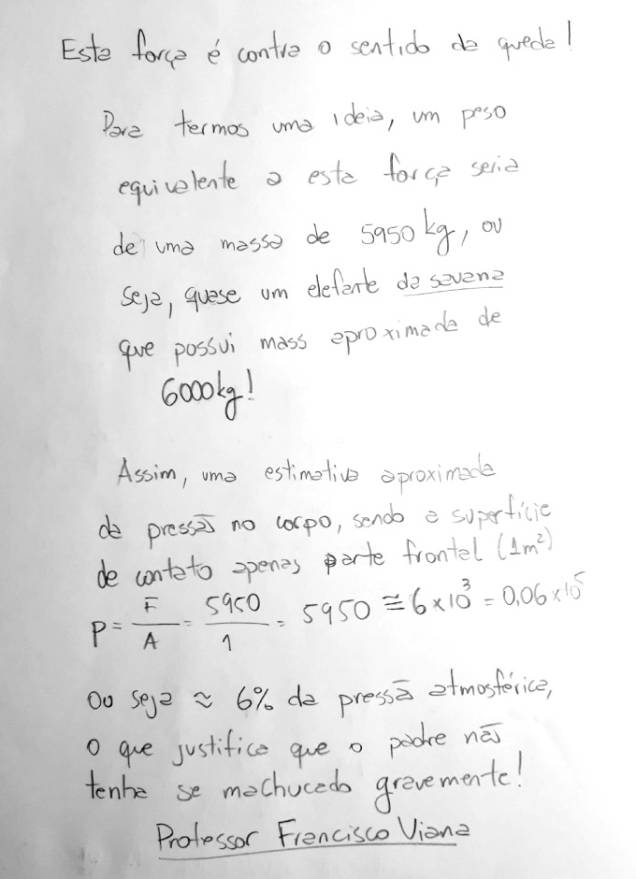 Esta força é contra o sentido da queda!
Para termos uma ideia, um peso
equivalente a esta força seria
de uma massa de 5950 kg, ou
seja, quase um elefante da savana
que possui mass aproximada de
6000kg!
Assim, uma estimativa aproximada
da pressão no corpo, sendo a superfície
de contato apenas parte frontal (1m²)
P = F/A = 5950/1 = 5950 ≅ 6 × 10³ = 0,06 × 10⁵
Ou seja ≈ 6% da pressão atmosférica,
o que justifica que o padre não
tenha se machucado gravemente!
Professor Francisco Viana